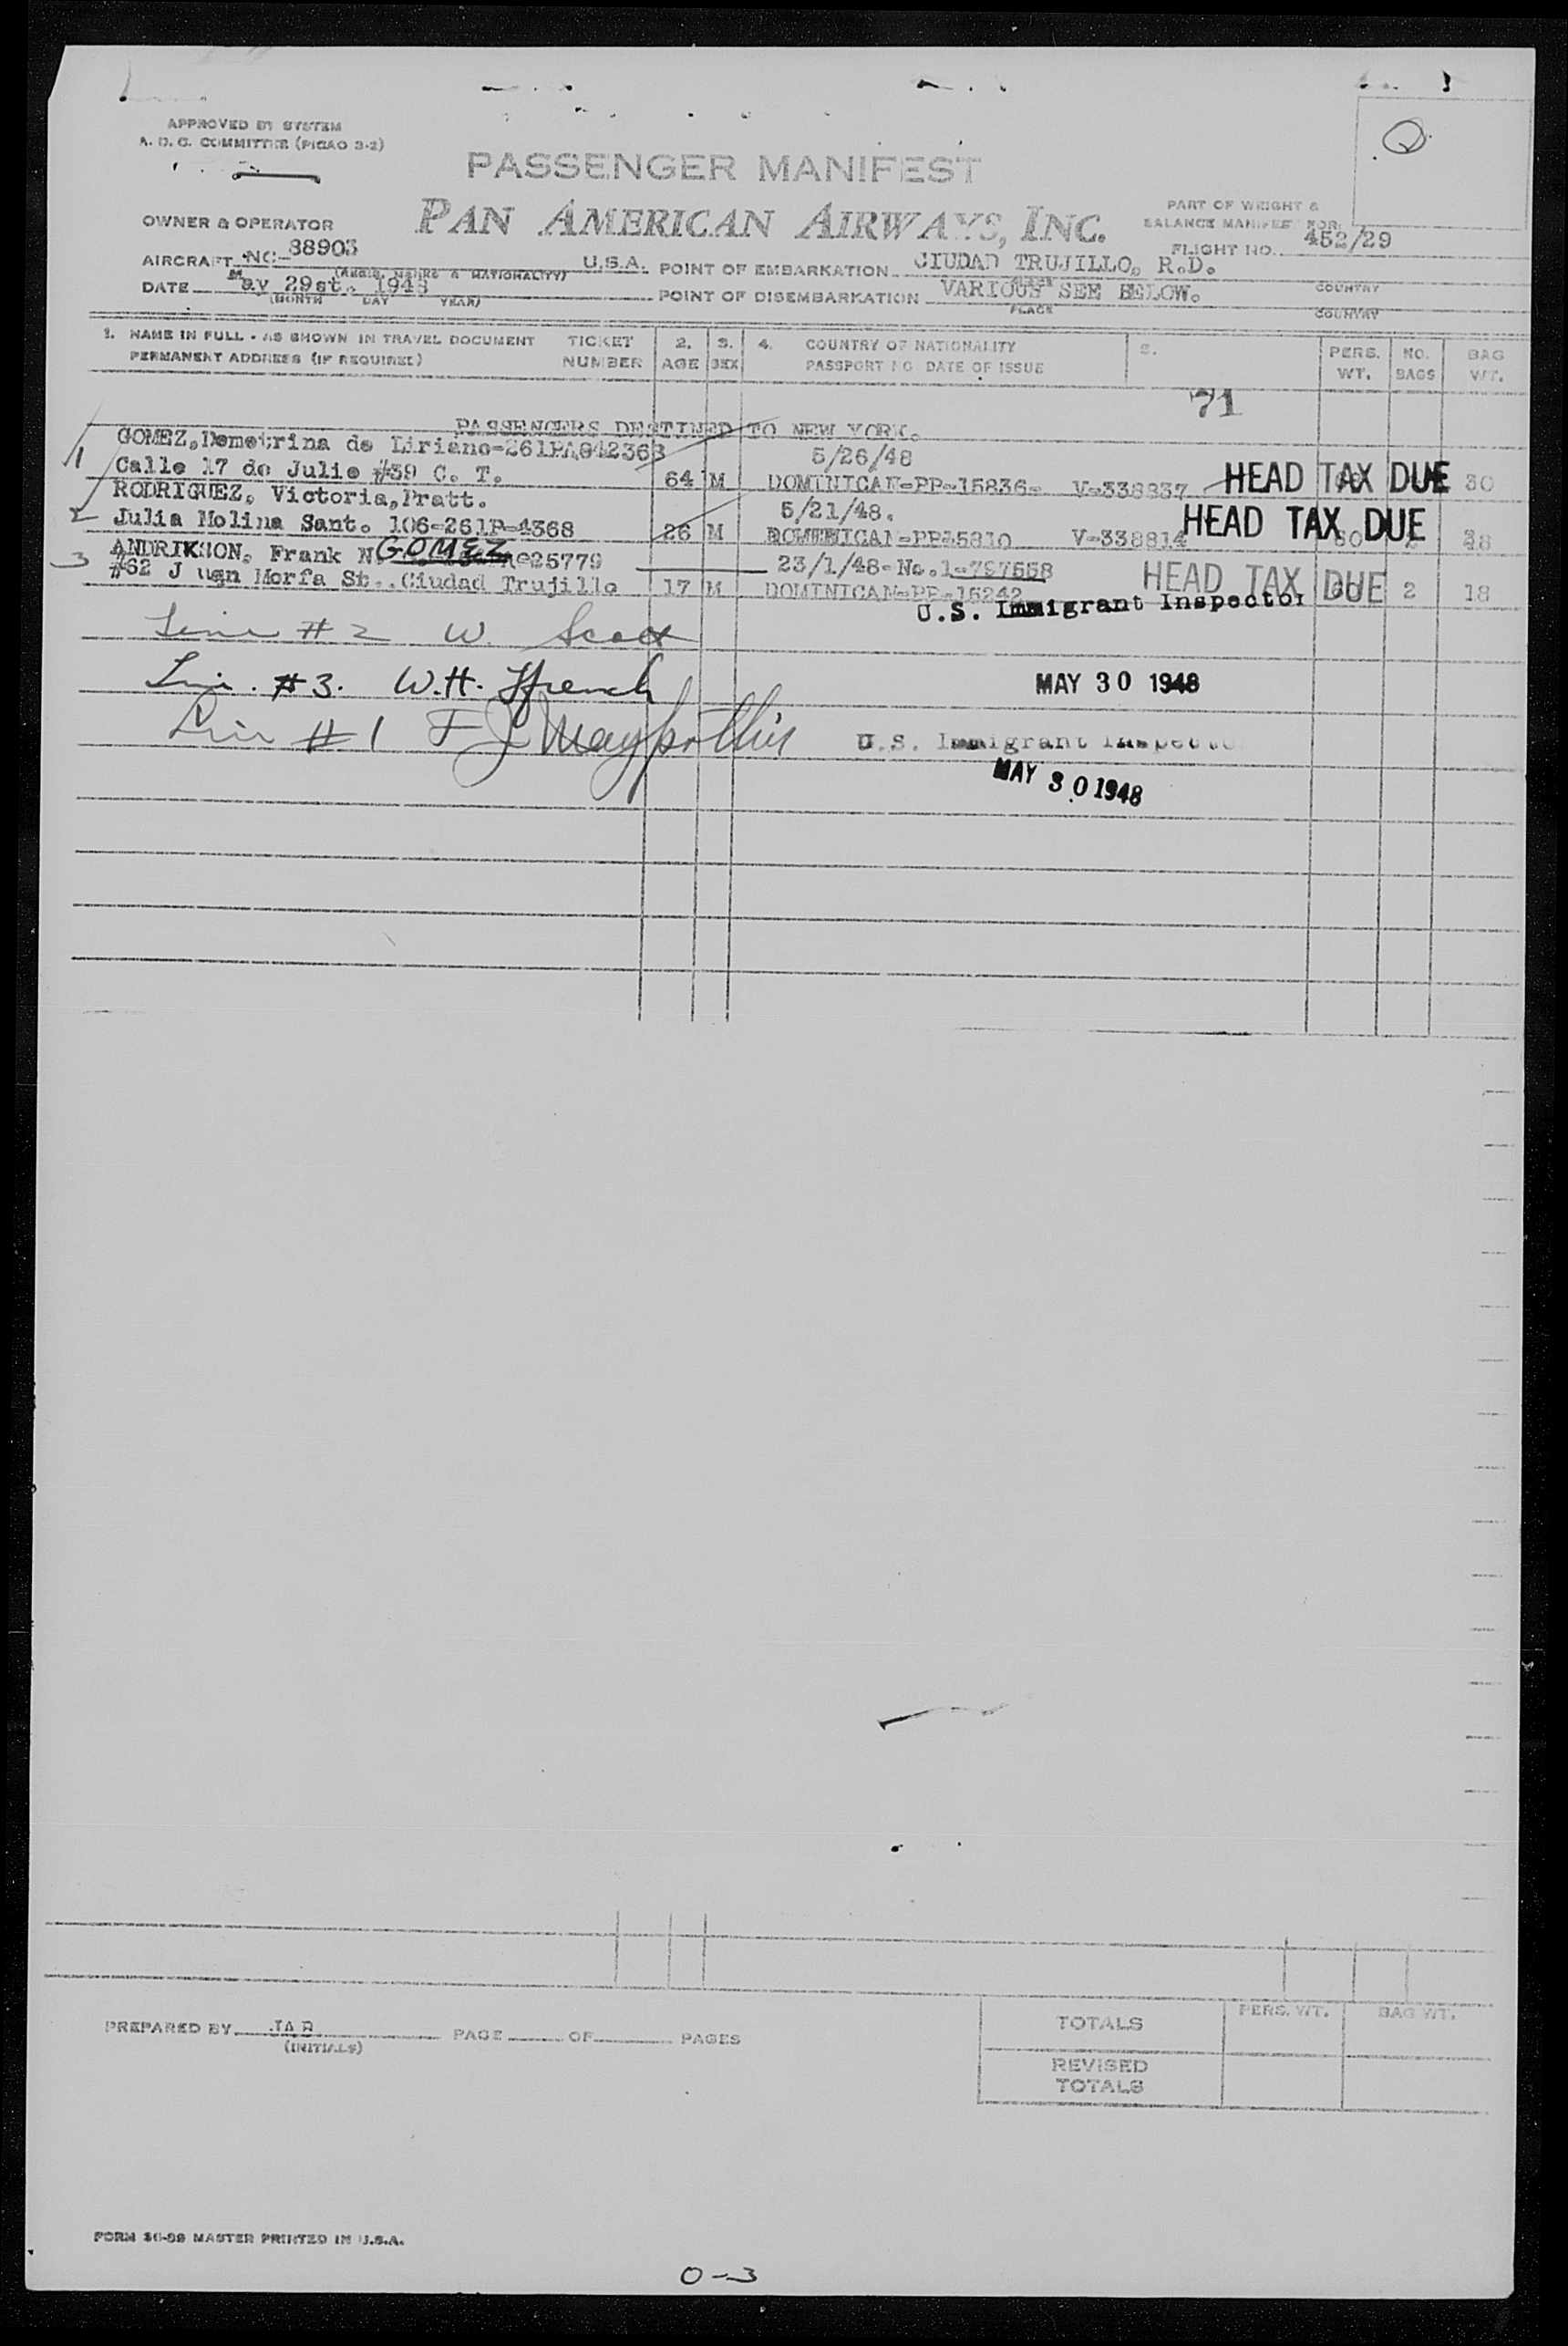 APPROVED BY SYSTEM
A. D. C. COMMITTEE (PICAO 3-2)
PASSENGER MANIFEST
PAN AMERICAN AIRWAYS, INC.
PART OF WEIGHT &
BALANCE MANIFEST FOR
FLIGHT NO. 452/29
OWNER & OPERATOR
AIRCRAFT NC-88903 U.S.A.
(MARKS & NATIONALITY)
POINT OF EMBARKATION CIUDAD TRUJILLO, R.D.
COUNTRY
DATE May 29st. 1948
(MONTH DAY YEAR)
POINT OF DISEMBARKATION VARIOUS SEE BELOW.
PLACE COUNTRY
1. NAME IN FULL - AS SHOWN IN TRAVEL DOCUMENT TICKET 2. 3. 4. COUNTRY OF NATIONALITY 5. PERS. NO. BAG
PERMANENT ADDRESS (IF REQUIRED) NUMBER AGE SEX PASSPORT NO DATE OF ISSUE WT. BAGS WT.
71
PASSENGERS DESTINED TO NEW YORK.
GOMEZ, Demetrina de Liriano-261PA842368 5/26/48
1 Calle 17 de Julio #39 C. T. 64 M DOMINICAN-PP-15836- V-338837 HEAD TAX DUE 30
RODRIGUEZ, Victoria, Pratt. 5/21/48.
2 Julia Molina Sant. 106-261P-4368 26 M DOMINICAN-PP15810 V-338814 HEAD TAX DUE
ANDRIKSON, Frank N. GOMEZ 25779 23/1/48-No.1-797558
3 #62 Juan Morfa St., Ciudad Trujillo 17 M DOMINICAN-PP-15242 HEAD TAX DUE 2 18
U.S. Immigrant Inspector
Line #2 W. Scott
Lin. #3. W.H. Ffrench
MAY 30 1948
Lin #1 F J
U.S. Immigrant Inspector
MAY 30 1948
PREPARED BY JAB PAGE OF PAGES
(INITIALS)
TOTALS PERS. WT. BAG WT.
REVISED
TOTALS
FORM 36-89 MASTER PRINTED IN U.S.A.
0-3